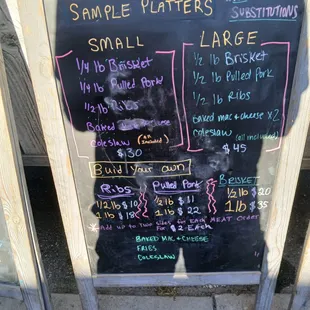 SAMPLE PLATTERS
SUBSTITUTIONS
SMALL
1/4 lb Brisket
1/4 lb Pulled Pork
1/2 lb Ribs
Baked mac & cheese
coleslaw (all included)
$30
LARGE
1/2 lb Brisket
1/2 lb Pulled Pork
1/2 lb Ribs
Baked mac & cheese x2
coleslaw (all included)
$45
Build your own
Ribs
1/2 lb $10
1 lb $18
Pulled Pork
1/2 lb $11
1 lb $22
BRISKET
1/2 lb $20
1 lb $35
*Add up to two sides for EACH MEAT ORDER
FOR $2 EACH
BAKED MAC & CHEESE
FRIES
COLESLAW